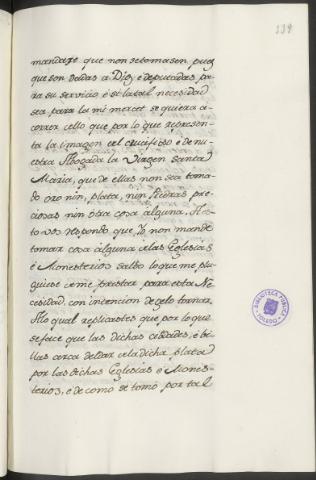 139
mandaxe que non se tomasen pues
que son dadas a Dios, e deputadas pa-
ra su servicio é si la tal necesidad
sea para la mi mercet se quiera a-
correr cello que por lo que represen-
ta la Imagen cel crucifiso é de nu-
estra Abogada la Virgen Santa
Maria, que de ellas non sea toma-
do oro nin, plata, nin Piedras pre-
ciosas nin otra cosa alguna, A es-
to vos respondo que, Yo non mande
tomar cosa alguna celas Eglesias
é Monesterios salbo lo que me plu-
guiese é me prestar para esta Ne-
cesidad, con intencion de gelo tornar,
A lo qual replicastes que por lo que
se face que las dichas cibdades, é bi-
llas acerca deldar cela dicha plata
por las dichas Eglesias é Mones-
terios, é de como se tomó por tal
BIBLIOTECA PUBLICA
TOLEDO